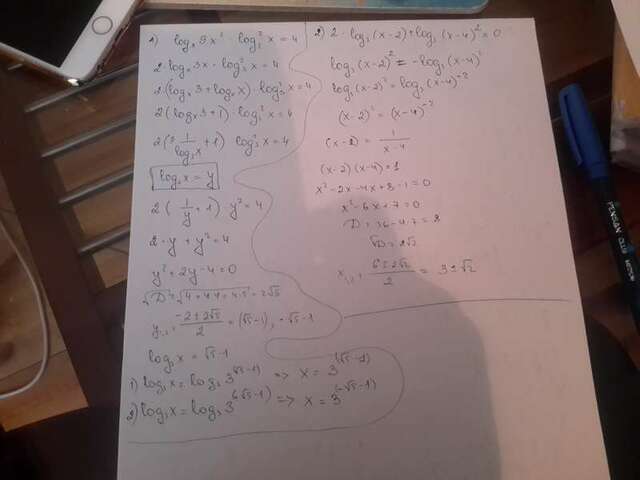 1) logₓ 9x² · log₃² x = 4
2 logₓ 3x · log₃² x = 4
2 (logₓ 3 + logₓ x) · log₃² x = 4
2 (logₓ 3 + 1) · log₃² x = 4
2 ( 1/log₃ x + 1) log₃² x = 4
log₃ x = y
2 ( 1/y + 1) y² = 4
2 · y + y² = 4
y² + 2y - 4 = 0
√D = √4 + 4 · 4 = 4 · 5 = 2√5
y₁,₂ = -2 ± 2√5 / 2 = (√5 - 1) , -√5 - 1
log₃ x = √5 - 1
1) log₃ x = log₃ 3^(√5 - 1) => x = 3^(√5 - 1)
2) log₃ x = log₃ 3^(-√5 - 1) => x = 3^(-√5 - 1)
2) 2 · log₃ (x - 2) + log₃ (x - 4)² = 0
log₃ (x - 2)² = - log₃ (x - 4)²
log₃ (x - 2)² = log₃ (x - 4)⁻²
(x - 2)² = (x - 4)⁻²
(x - 2) = 1 / x - 4
(x - 2) (x - 4) = 1
x² - 2x - 4x + 8 - 1 = 0
x² - 6x + 7 = 0
D = 36 - 4 · 7 = 8
√D = 2√2
x₁,₂ = 6 ± 2√2 / 2 = 3 ± √2
PENSAN